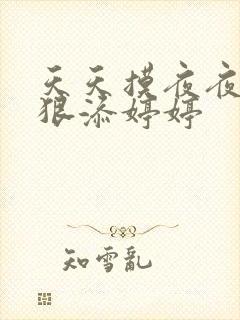 天天摸夜夜
狠添婷婷
知雪乱